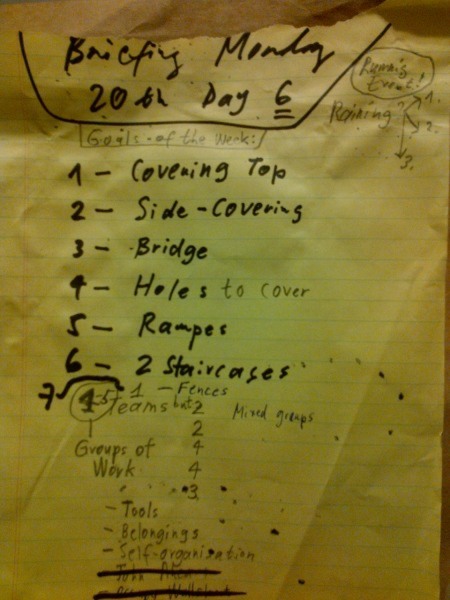 Briefing Monday
20th Day 6
Rumi's
Event!
Raining?
1.
2.
3.
Goals of the Week:
1 - Covering Top
2 - Side-Covering
3 - Bridge
4 - Holes to cover
5 - Rampes
6 - 2 Staircases
7
1 - Fences
Teams but 2
Mixed groups
2
Groups of
4
Work
4
3
- Tools
- Belongings
- Self-organisation